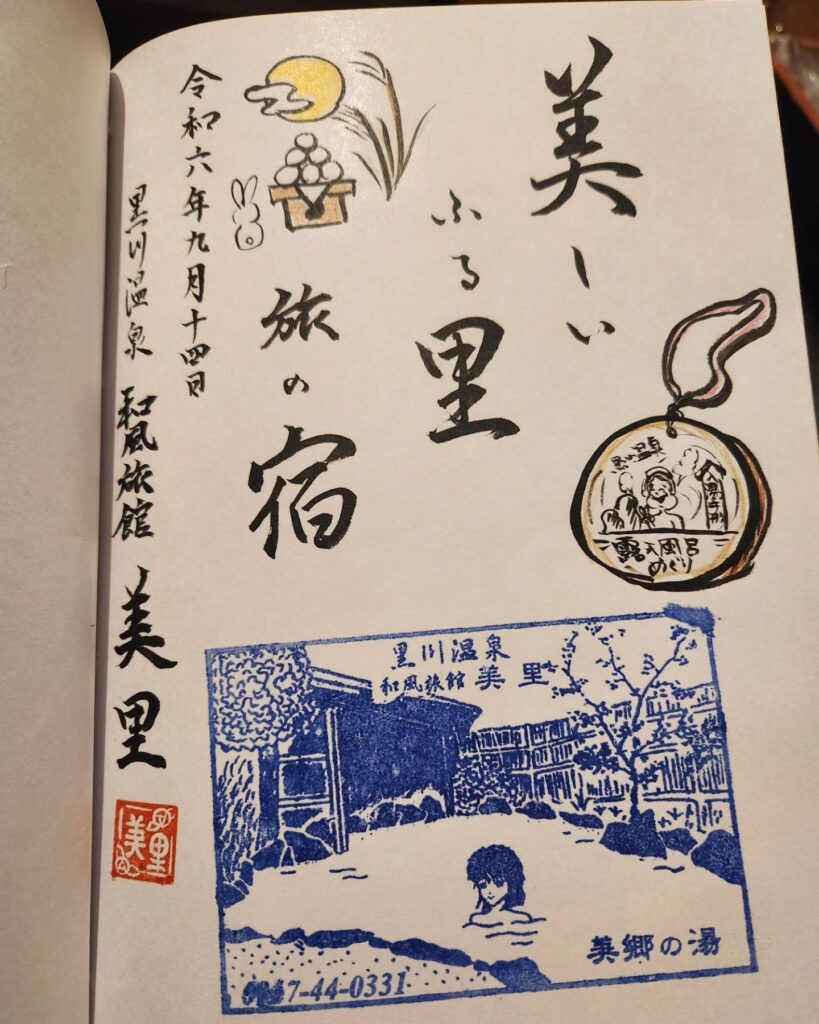 美しい
ふる里
旅の宿
令和六年九月十四日
黒川温泉 和風旅館 美里
美里
黒川温泉
入湯手形
露天風呂
めぐり
黒川温泉
和風旅館 美里
美郷の湯
0967-44-0331